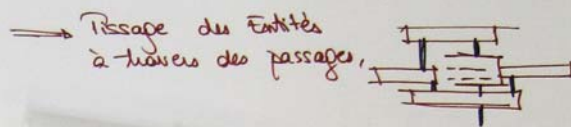 Tissage des Entités
à travers des passages,